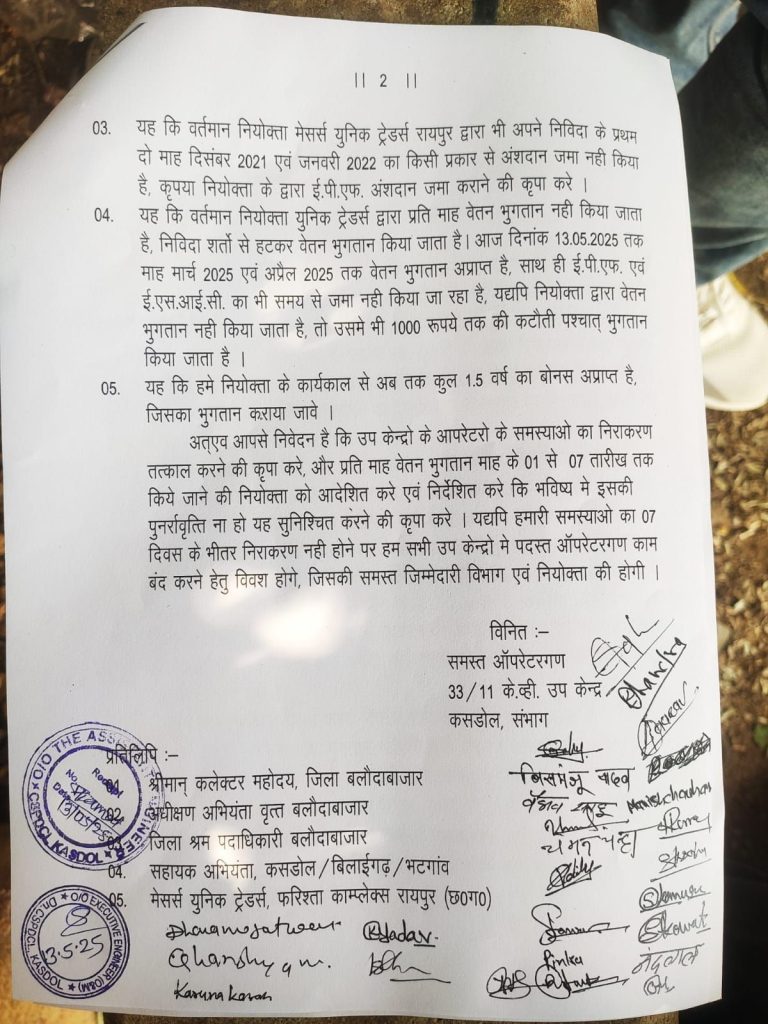 || 2 ||
03. यह कि वर्तमान नियोक्ता मेसर्स युनिक ट्रेडर्स रायपुर द्वारा भी अपने निविदा के प्रथम
दो माह दिसंबर 2021 एवं जनवरी 2022 का किसी प्रकार से अंशदान जमा नही किया
है, कृपया नियोक्ता के द्वारा ई.पी.एफ. अंशदान जमा कराने की कृपा करे ।
04. यह कि वर्तमान नियोक्ता युनिक ट्रेडर्स द्वारा प्रति माह वेतन भुगतान नही किया जाता
है, निविदा शर्तो से हटकर वेतन भुगतान किया जाता है। आज दिनांक 13.05.2025 तक
माह मार्च 2025 एवं अप्रैल 2025 तक वेतन भुगतान अप्राप्त है, साथ ही ई.पी.एफ. एवं
ई.एस.आई.सी. का भी समय से जमा नही किया जा रहा है, यद्यपि नियोक्ता द्वारा वेतन
भुगतान नही किया जाता है, तो उसमे भी 1000 रूपये तक की कटौती पश्चात् भुगतान
किया जाता है ।
05. यह कि हमे नियोक्ता के कार्यकाल से अब तक कुल 1.5 वर्ष का बोनस अप्राप्त है,
जिसका भुगतान कराया जावे ।
अत्एव आपसे निवेदन है कि उप केन्द्रो के आपरेटरो के समस्याओ का निराकरण
तत्काल करने की कृपा करे, और प्रति माह वेतन भुगतान माह के 01 से 07 तारीख तक
किये जाने की नियोक्ता को आदेशित करे एवं निर्देशित करे कि भविष्य मे इसकी
पुनर्रावृत्ति ना हो यह सुनिश्चित करने की कृपा करे । यद्यपि हमारी समस्याओ का 07
दिवस के भीतर निराकरण नही होने पर हम सभी उप केन्द्रो मे पदस्त ऑपरेटरगण काम
बंद करने हेतु विवश होगे, जिसकी समस्त जिम्मेदारी विभाग एवं नियोक्ता की होगी ।
विनित :–
समस्त ऑपरेटरगण
33/11 के.व्ही. उप केन्द्र
कसडोल, संभाग
प्रतिलिपि :–
01. श्रीमान् कलेक्टर महोदय, जिला बलौदाबाजार
02. अधीक्षण अभियंता वृत्त बलौदाबाजार
03. जिला श्रम पदाधिकारी बलौदाबाजार
04. सहायक अभियंता, कसडोल/बिलाईगढ़/भटगांव
05. मेसर्स युनिक ट्रेडर्स, फरिश्ता काम्प्लेक्स रायपुर (छ0ग0)
O/O THE ASS
CSPDCL KASDOL
13/05/25
O/O EXECUTIVE ENGINEER (O&M)
Dn. CSPDCL, KASDOL
13.5.25
Chandra
Manish chauhan
Yadav
Karuna Karan
Pinku
नंदलाल